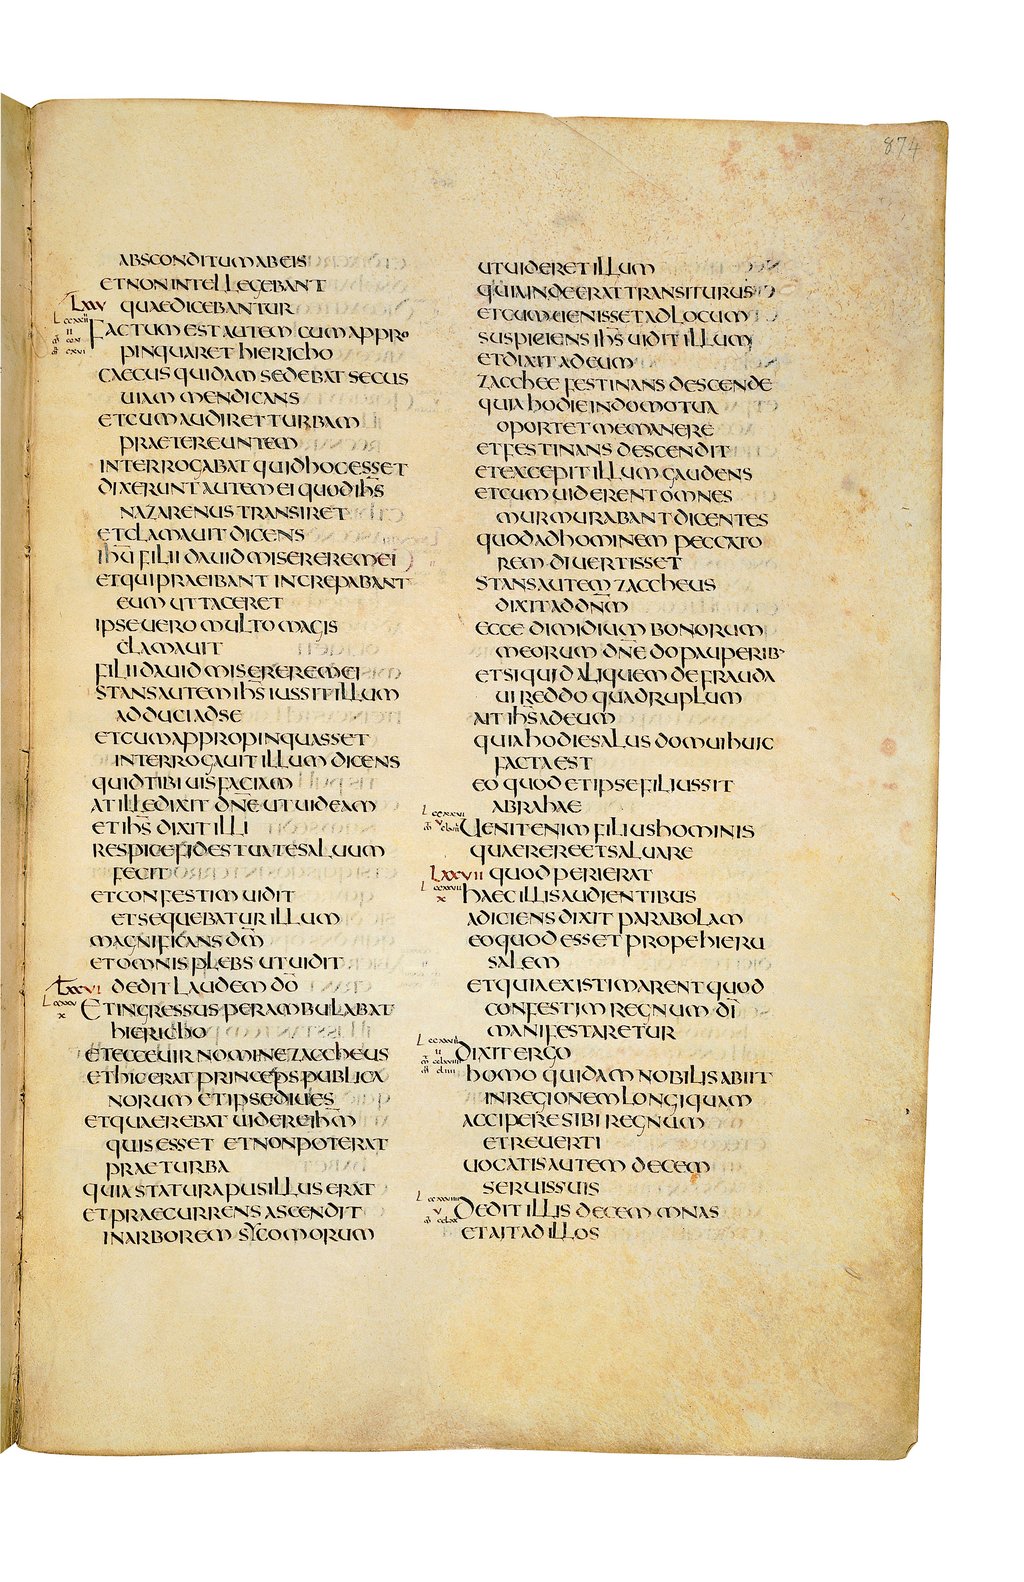 874
ABSCONDITUM AB EIS
ET NON INTELLEGEBANT
LXXV QUAE DICEBANTUR
FACTUM EST AUTEM CUM APPRO
PINQUARET HIERICHO
CAECUS QUIDAM SEDEBAT SECUS
UIAM MENDICANS
ET CUM AUDIRET TURBAM
PRAETEREUNTEM
INTERROGABAT QUID HOC ESSET
DIXERUNT AUTEM EI QUOD IH̅S
NAZARENUS TRANSIRET
ET CLAMAUIT DICENS
IH̅U FILII DAUID MISERERE MEI
ET QUI PRAEIBANT INCREPABANT
EUM UT TACERET
IPSE UERO MULTO MAGIS
CLAMAUIT
FILII DAUID MISERERE MEI
STANS AUTEM IH̅S IUSSIT ILLUM
ADDUCI AD SE
ET CUM APPROPINQUASSET
INTERROGAUIT ILLUM DICENS
QUID TIBI UIS FACIAM
AT ILLE DIXIT DN̅E UT UIDEAM
ET IH̅S DIXIT ILLI
RESPICE FIDES TUA TE SALUUM
FECIT
ET CONFESTIM UIDIT
ET SEQUEBATUR ILLUM
MAGNIFICANS DM̅
ET OMNIS PLEBS UT UIDIT
LXXVI DEDIT LAUDEM DO̅
ET INGRESSUS PERAMBULABAT
HIERICHO
ET ECCE UIR NOMINE ZACCHEUS
ET HIC ERAT PRINCEPS PUBLICA
NORUM ET IPSE DIUES
ET QUAEREBAT UIDERE IH̅M
QUIS ESSET ET NON POTERAT
PRAE TURBA
QUIA STATURA PUSILLUS ERAT
ET PRAECURRENS ASCENDIT
IN ARBOREM SYCOMORUM
UT UIDERET ILLUM
QUIA INDE ERAT TRANSITURUS
ET CUM UENISSET AD LOCUM
SUSPICIENS IH̅S UIDIT ILLUM
ET DIXIT AD EUM
ZACCHEE FESTINANS DESCENDE
QUIA HODIE IN DOMO TUA
OPORTET ME MANERE
ET FESTINANS DESCENDIT
ET EXCEPIT ILLUM GAUDENS
ET CUM UIDERENT OMNES
MURMURABANT DICENTES
QUOD AD HOMINEM PECCATO
REM DIUERTISSET
STANS AUTEM ZACCHEUS
DIXIT AD DN̅M
ECCE DIMIDIUM BONORUM
MEORUM DN̅E DO PAUPERIB·
ET SI QUID ALIQUEM DEFRAUDA
UI REDDO QUADRUPLUM
AIT IH̅S AD EUM
QUIA HODIE SALUS DOMUI HUIC
FACTA EST
EO QUOD ET IPSE FILIUS SIT
ABRAHAE
UENIT ENIM FILIUS HOMINIS
QUAERERE ET SALUARE
LXXVII QUOD PERIERAT
HAEC ILLIS AUDIENTIBUS
ADICIENS DIXIT PARABOLAM
EO QUOD ESSET PROPE HIERU
SALEM
ET QUIA EXISTIMARENT QUOD
CONFESTIM REGNUM DI̅
MANIFESTARETUR
DIXIT ERGO
HOMO QUIDAM NOBILIS ABIIT
IN REGIONEM LONGIQUAM
ACCIPERE SIBI REGNUM
ET REUERTI
UOCATIS AUTEM DECEM
SERUIS SUIS
DEDIT ILLIS DECEM MNAS
ET AIT AD ILLOS